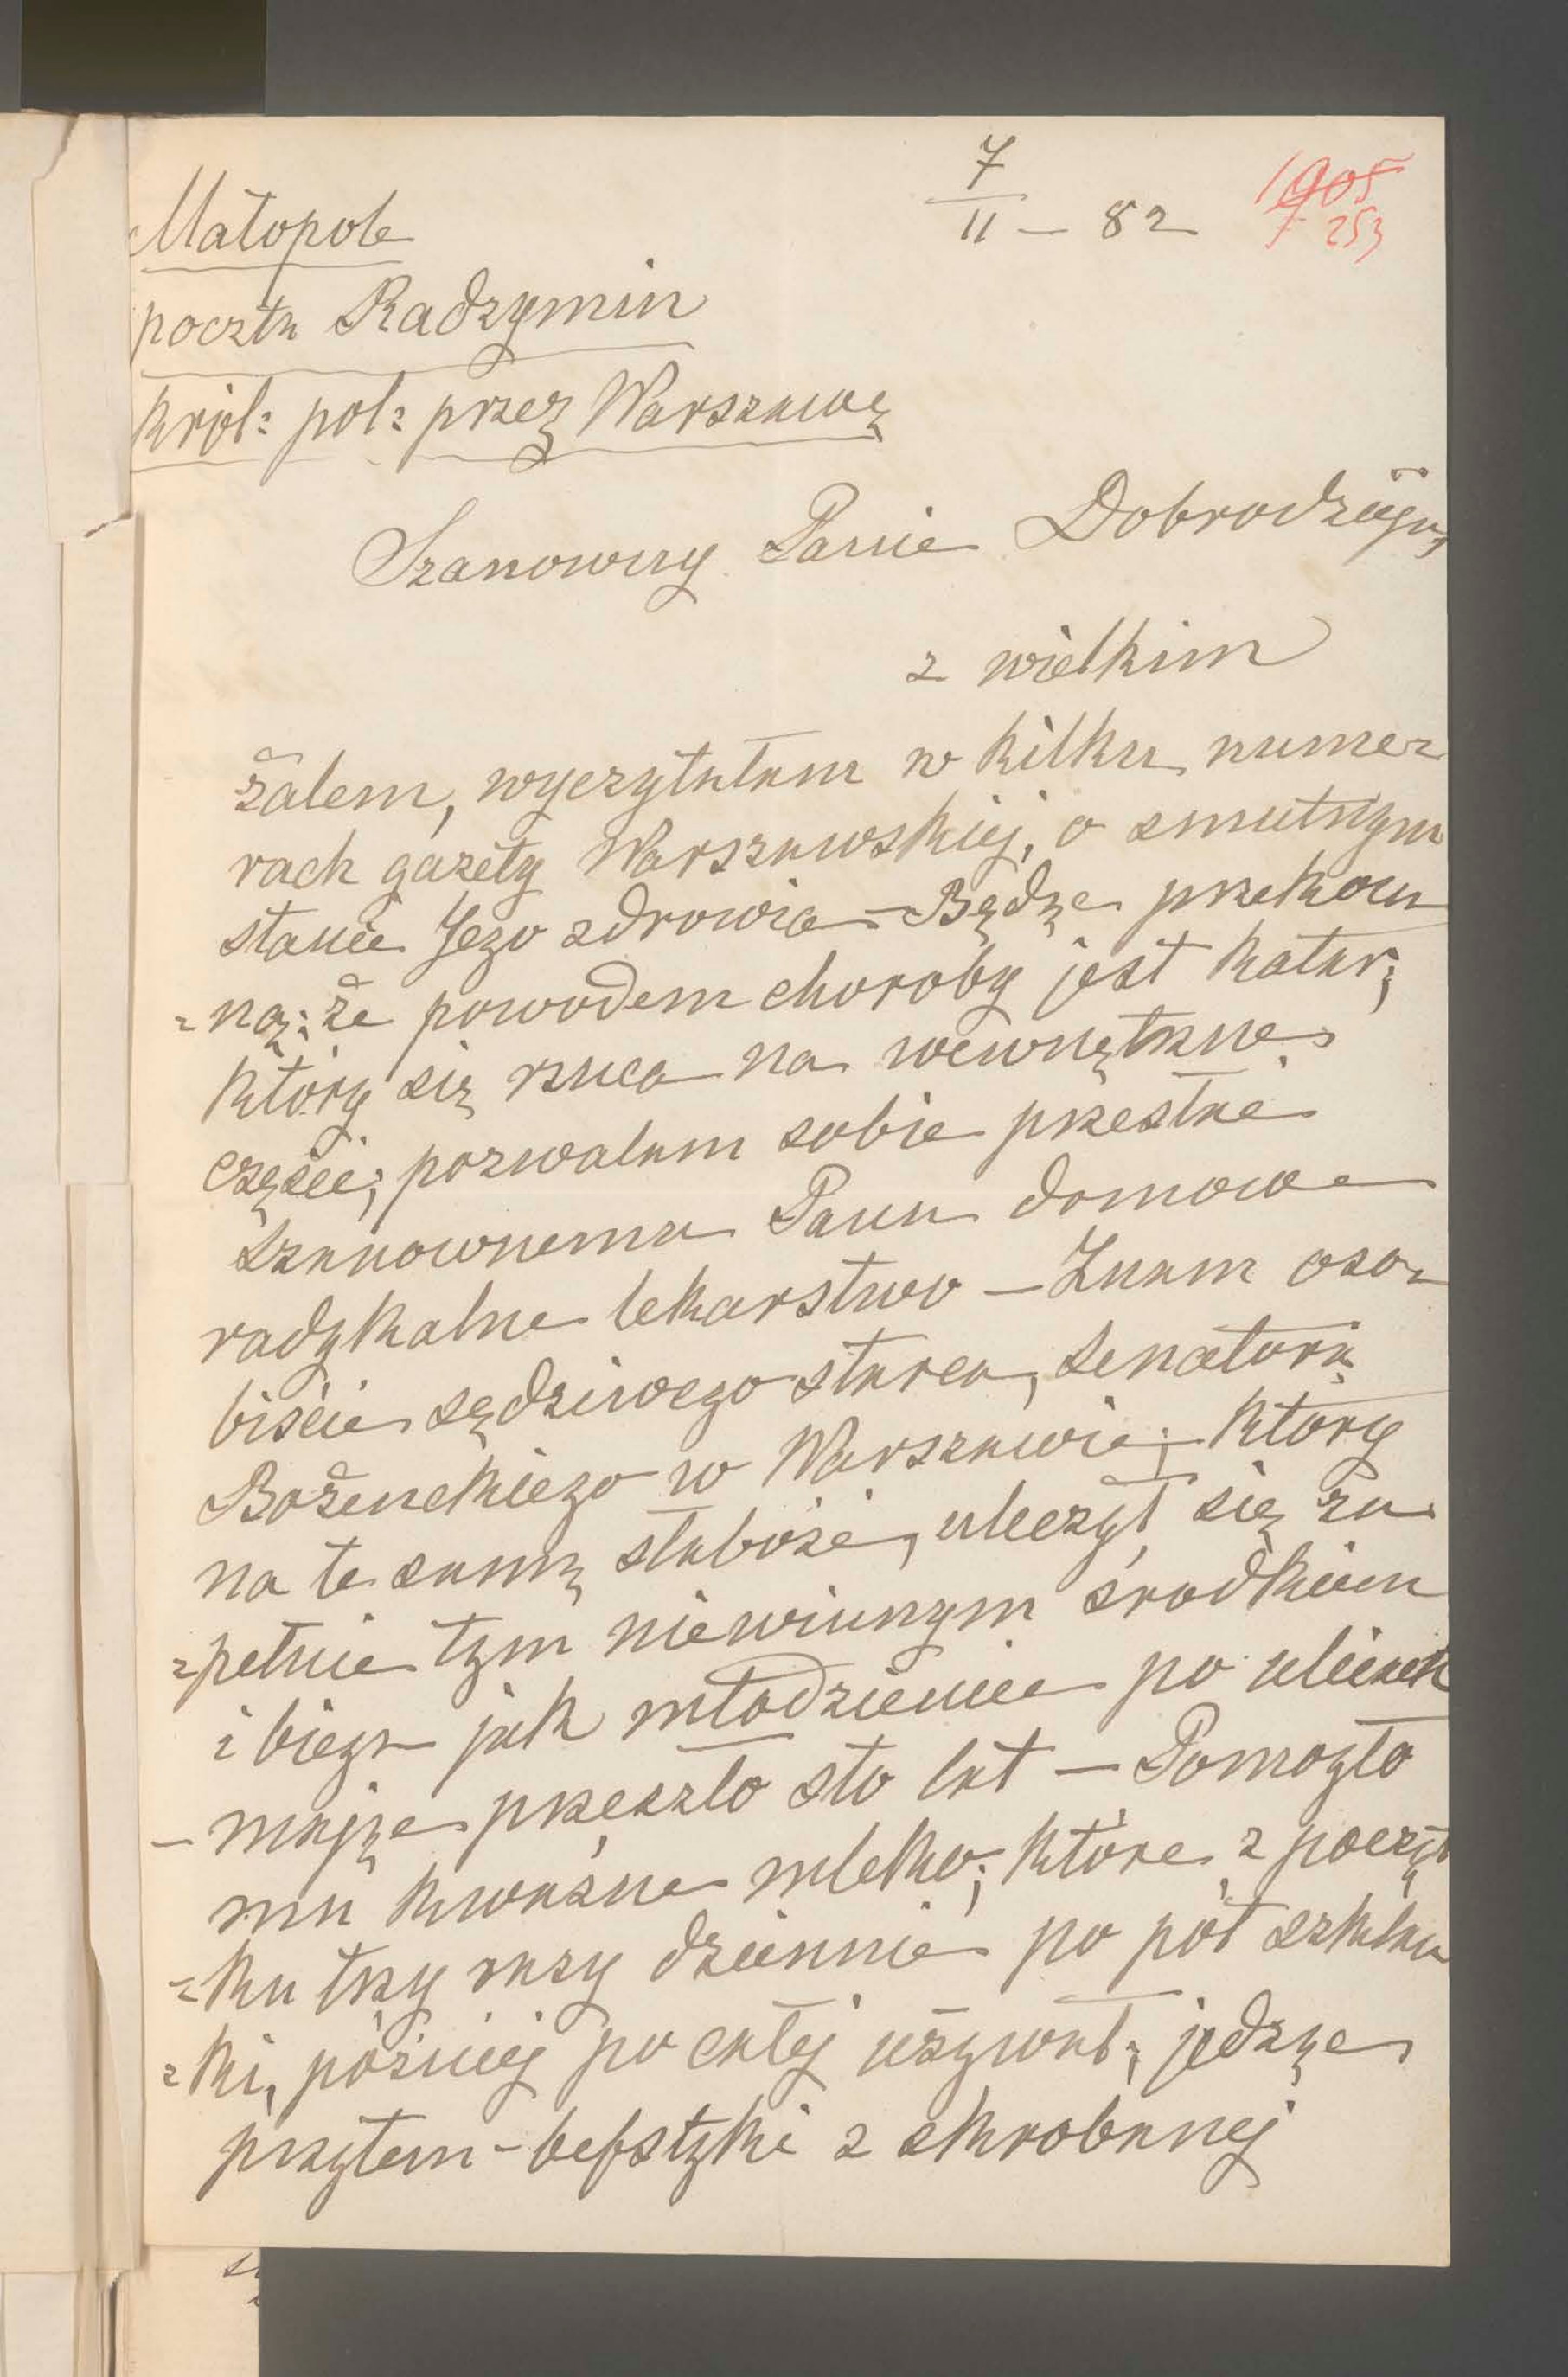 7/II – 82
1905
253
Małopole
poczta Radzymin
król: pol: przez Warszawę
Szanowny Panie Dobrodzieju,
z wielkim
żalem, wyczytałam w kilku nume=
rach gazety Warszawskiej, o smutnym
stanie Jego zdrowia – Będąc przekona
=ną: że powodem choroby jest katar;
który się rzuca na wewnętrzne
części; pozwalam sobie przesłać
Szanownemu Panu domowe
radykalne lekarstwo – Znam oso=
biście sędziwego starca, senatora
Bożenckiego w Warszawie; który
na te samą słabość, uleczył się zu
=pełnie tym niewinnym środkiem
i biega jak młodzieniec po ulicach
– mając przeszło sto lat – Pomogło
mu kwaśne mleko; które z począt
=ku trzy razy dziennie po pół szklan
=ki, później po całej używał; jedząc
przytem – befsztyki z skrobanej